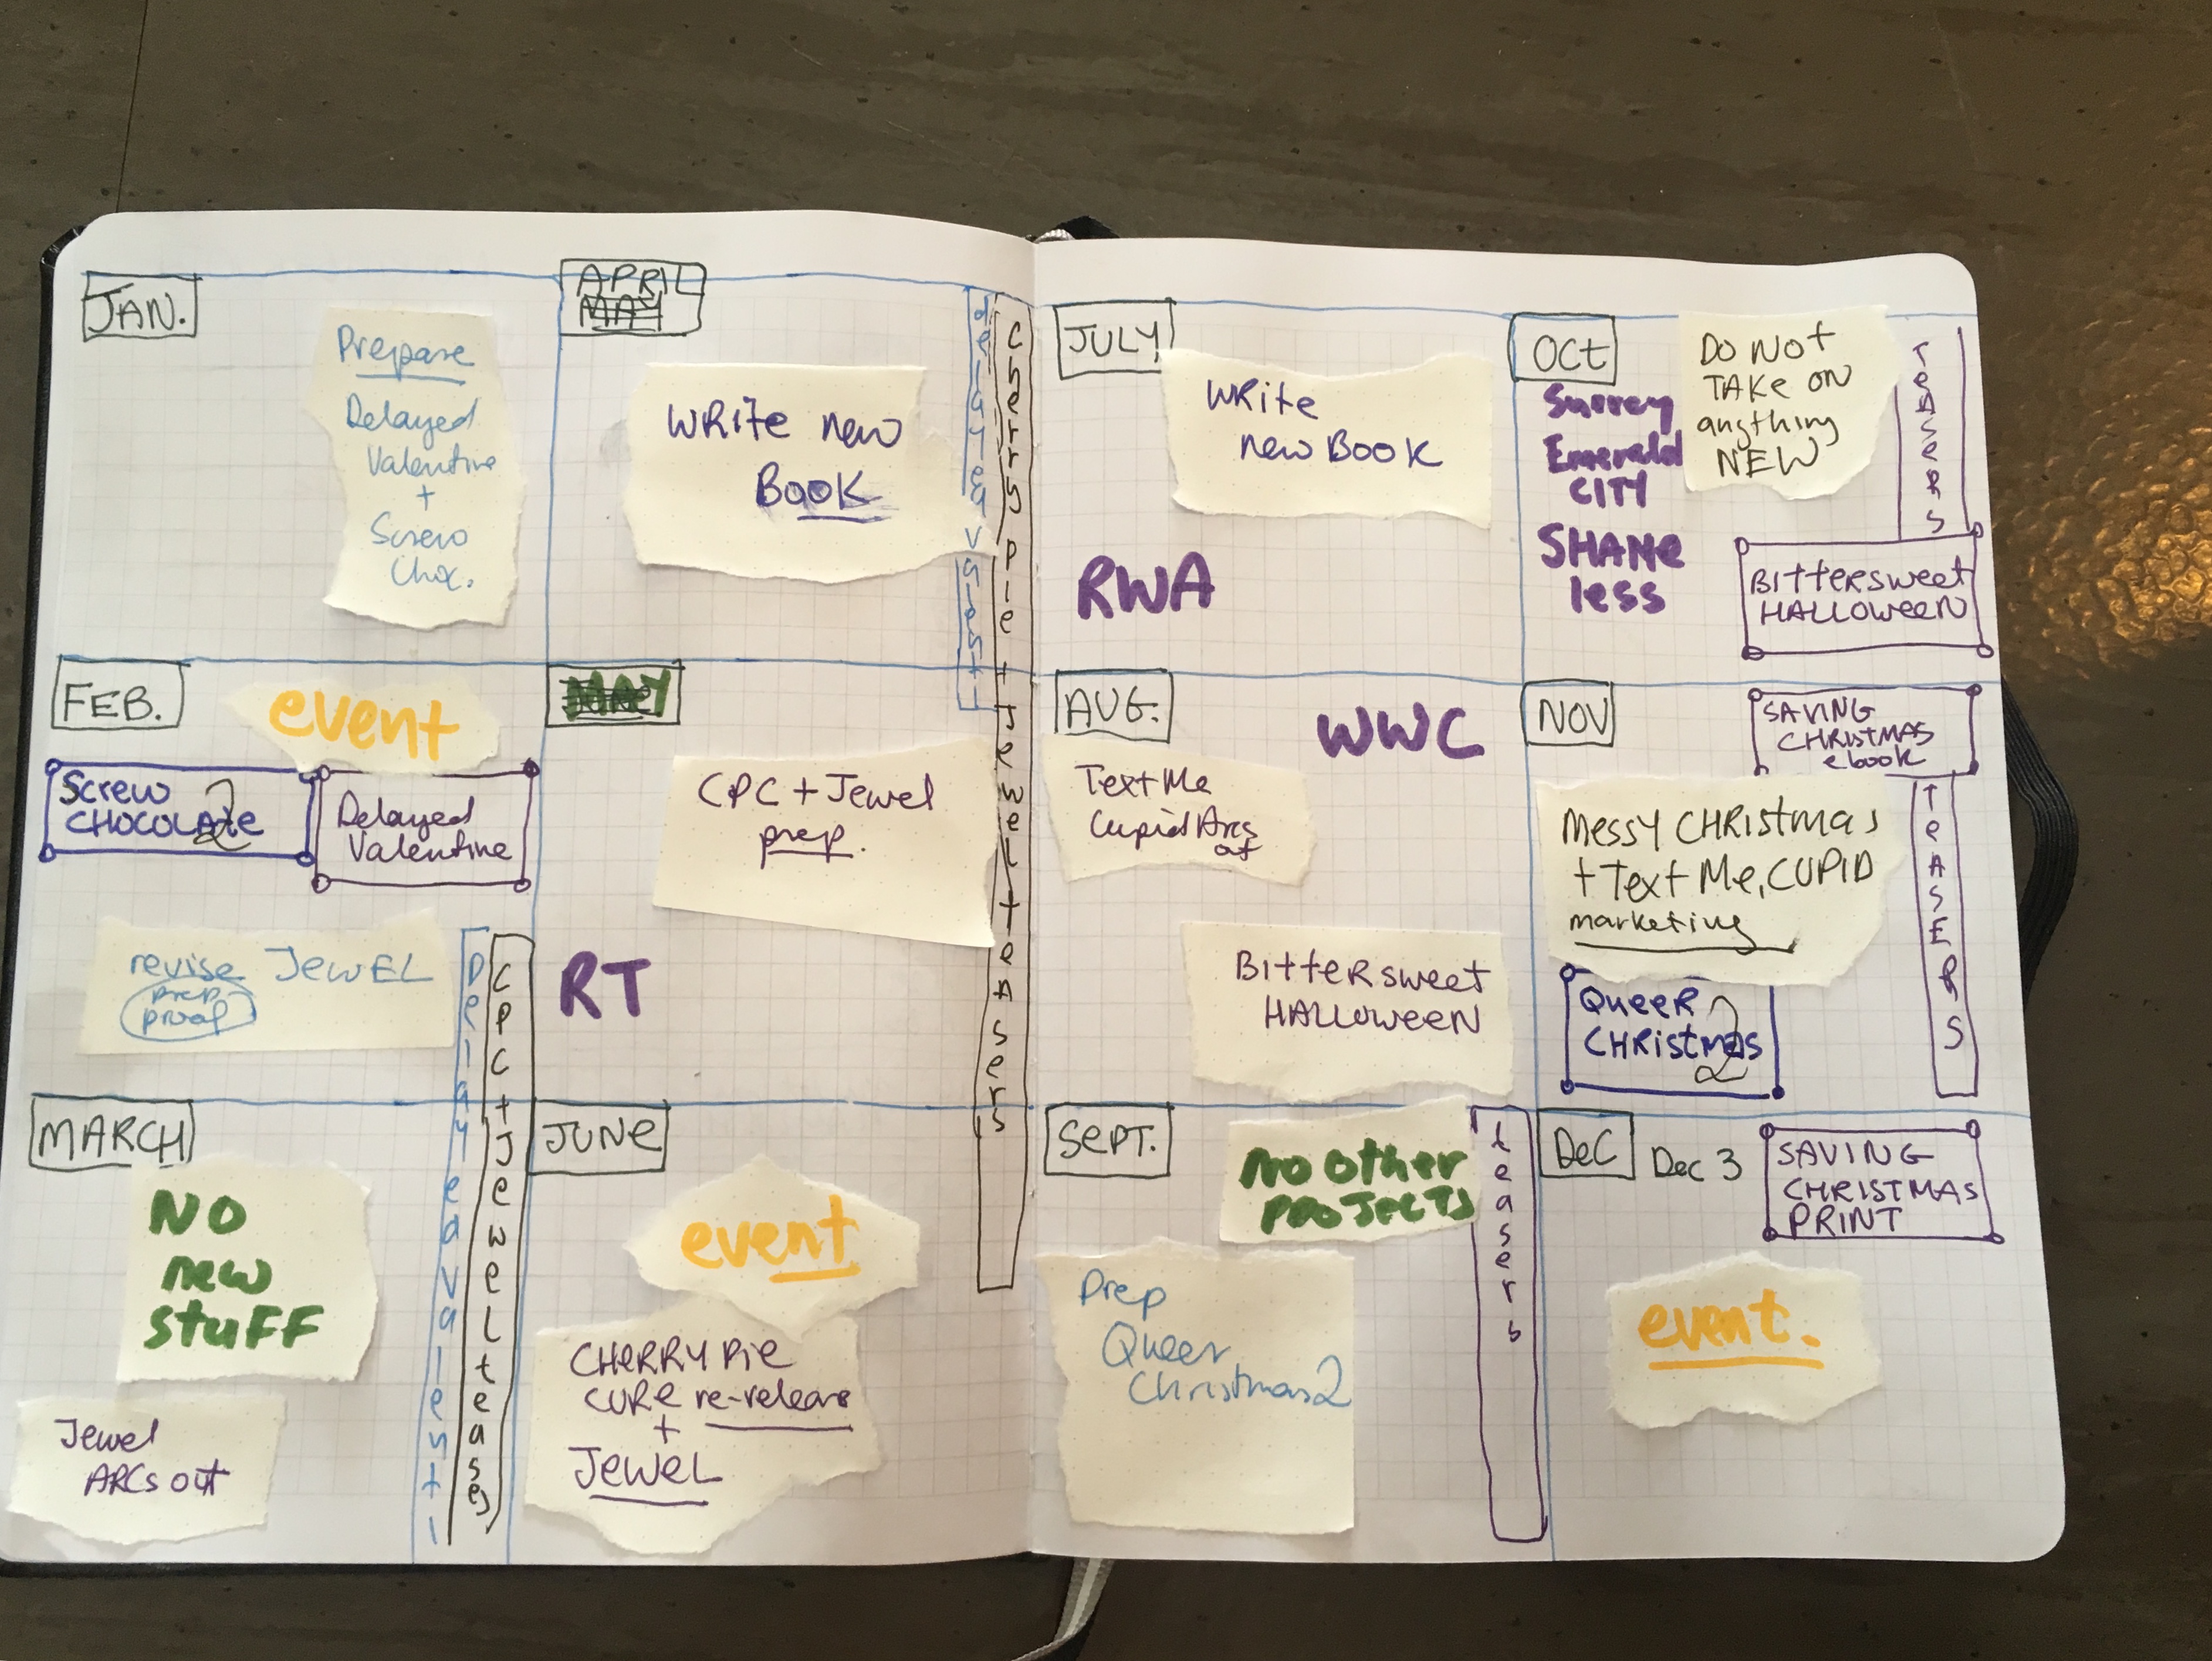 JAN.
Prepare
Delayed
Valentine
+
Screw
Choc.
FEB.
event
Screw 2
CHOCOLATE 2
Delayed
Valentine
revise JEWEL
prep
proof
Delayed Valest 1
CPC + Jewel teases
MARCH
NO
new
stuff
Jewel
ARCs out
APRIL
MAY
WRite new
BOOK
delayed Valest 1
Cherry Pie + Jewel teasers
MAY
CPC + Jewel
prep.
RT
JUNE
event
CHERRY Pie
CURE re-release
+
JEWEL
JULY
WRite
new BOOK
RWA
AUG.
WWC
Text Me
Cupid Arcs
out
BitteRsweet
HALLOWEEN
SEPT.
NO other
PROJECTS
Prep
Queer
Christmas 2
teasers
OCt
Surrey
Emerald
CITY
SHAMe
less
DO NOt
TAKE ON
anything
NEW
TeAseRS
BitteRsweet
HALLOWEEN
NOV
SAVING
CHRISTMAS
ebook
Messy CHRistmas
+ Text Me, CUPID
marketing
TeASERS
QueeR 2
CHRistmas 2
DeC
Dec 3
SAVING
CHRISTMAS
PRINT
event.